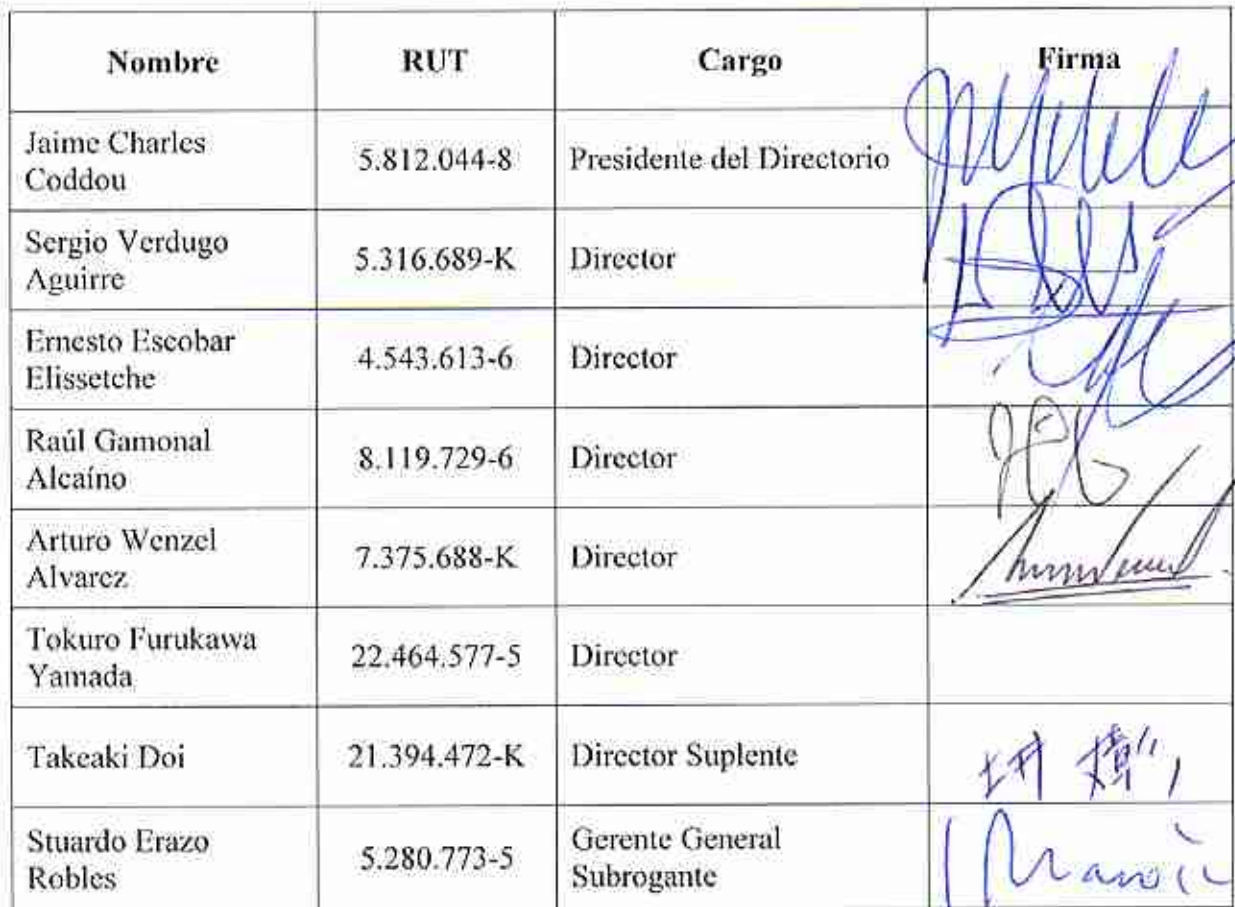 Nombre RUT Cargo Firma
Jaime Charles
Coddou
5.812.044-8 Presidente del Directorio
Sergio Verdugo
Aguirre
5.316.689-K Director
Ernesto Escobar
Elissetche
4.543.613-6 Director
Raúl Gamonal
Alcaíno
8.119.729-6 Director
Arturo Wenzel
Alvarez
7.375.688-K Director
Tokuro Furukawa
Yamada
22.464.577-5 Director
Takeaki Doi 21.394.472-K Director Suplente
Stuardo Erazo
Robles
5.280.773-5
Gerente General
Subrogante